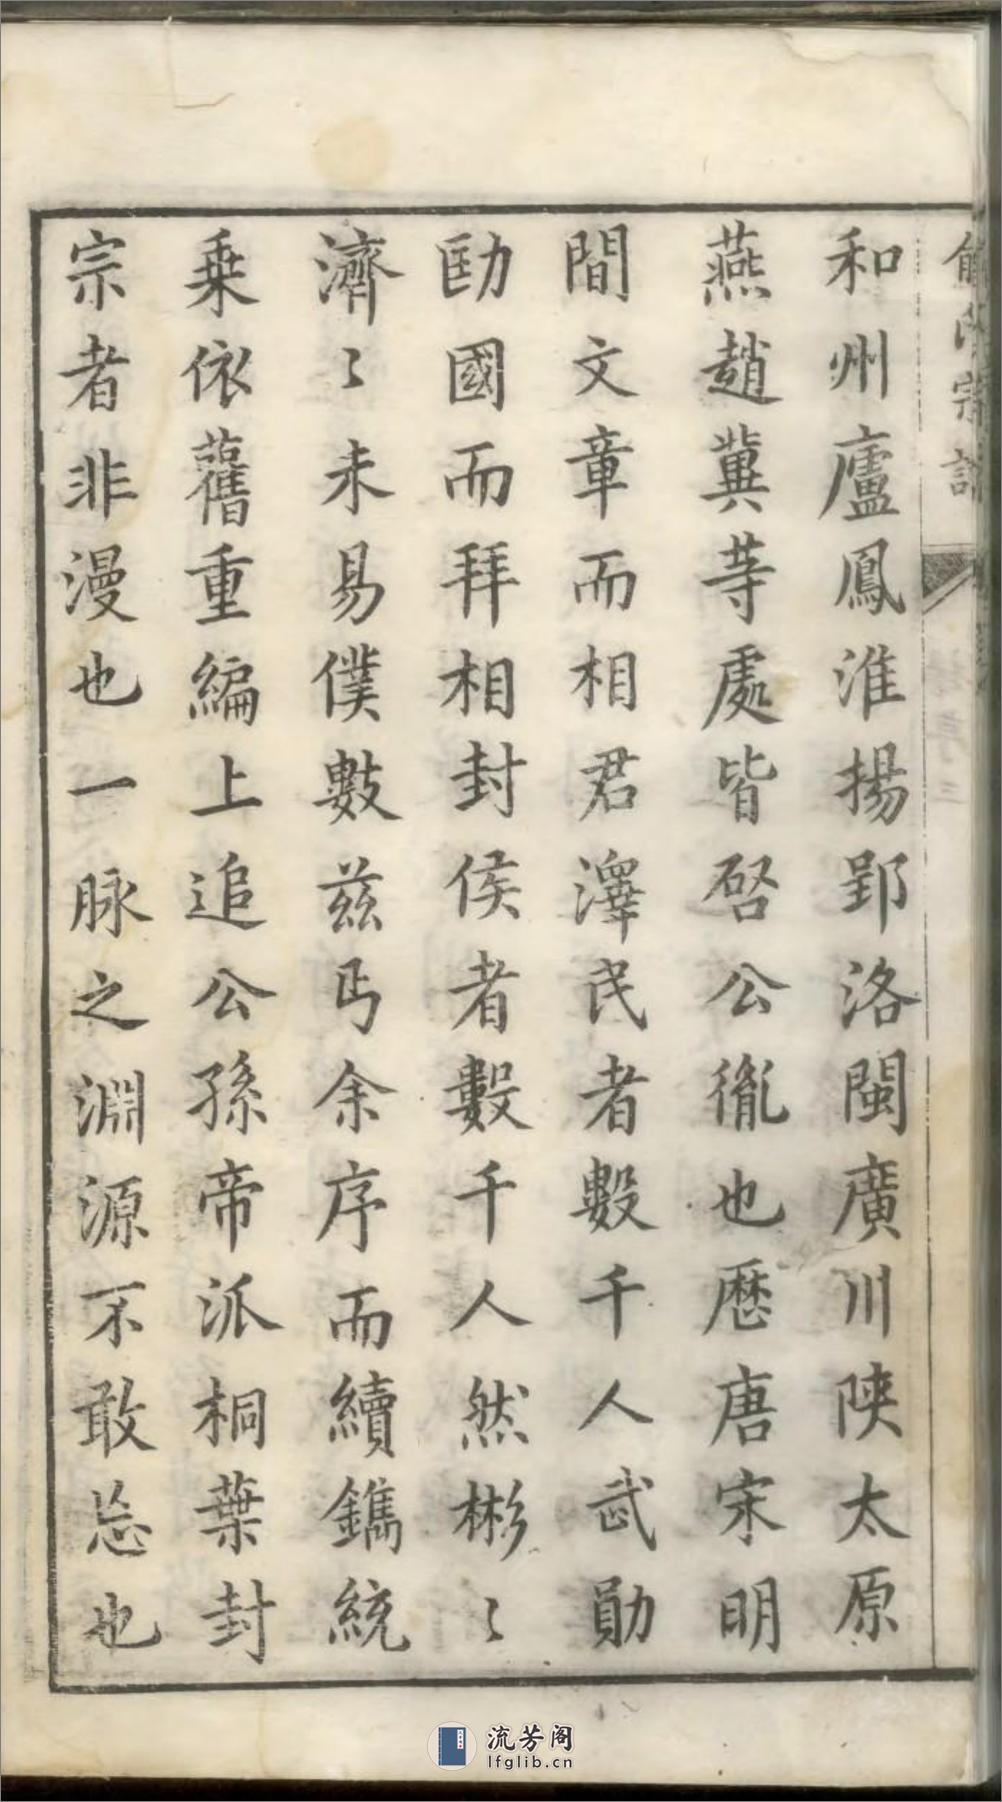 和州廬鳳淮揚郢洛閩廣川陕太原
燕趙冀荨處皆啓公胤也厯唐宋明
間文章而相君澤民者數千人武勛
勛國而拜相封侯者數千人然彬〻
濟〻未易僕數兹丐余序而續鐫統
乗依舊重編上追公孫帝派桐葉封
宗者非漫也一脉之淵源不敢忘也
流芳阁
lfglib.cn